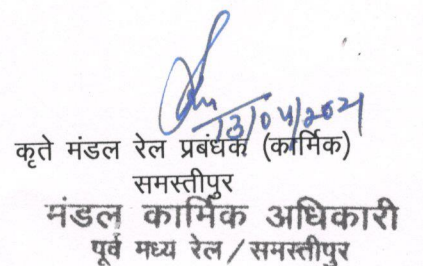 13/04/2021
कृते मंडल रेल प्रबंधक (कार्मिक)
समस्तीपुर
मंडल कार्मिक अधिकारी
पूर्व मध्य रेल / समस्तीपुर